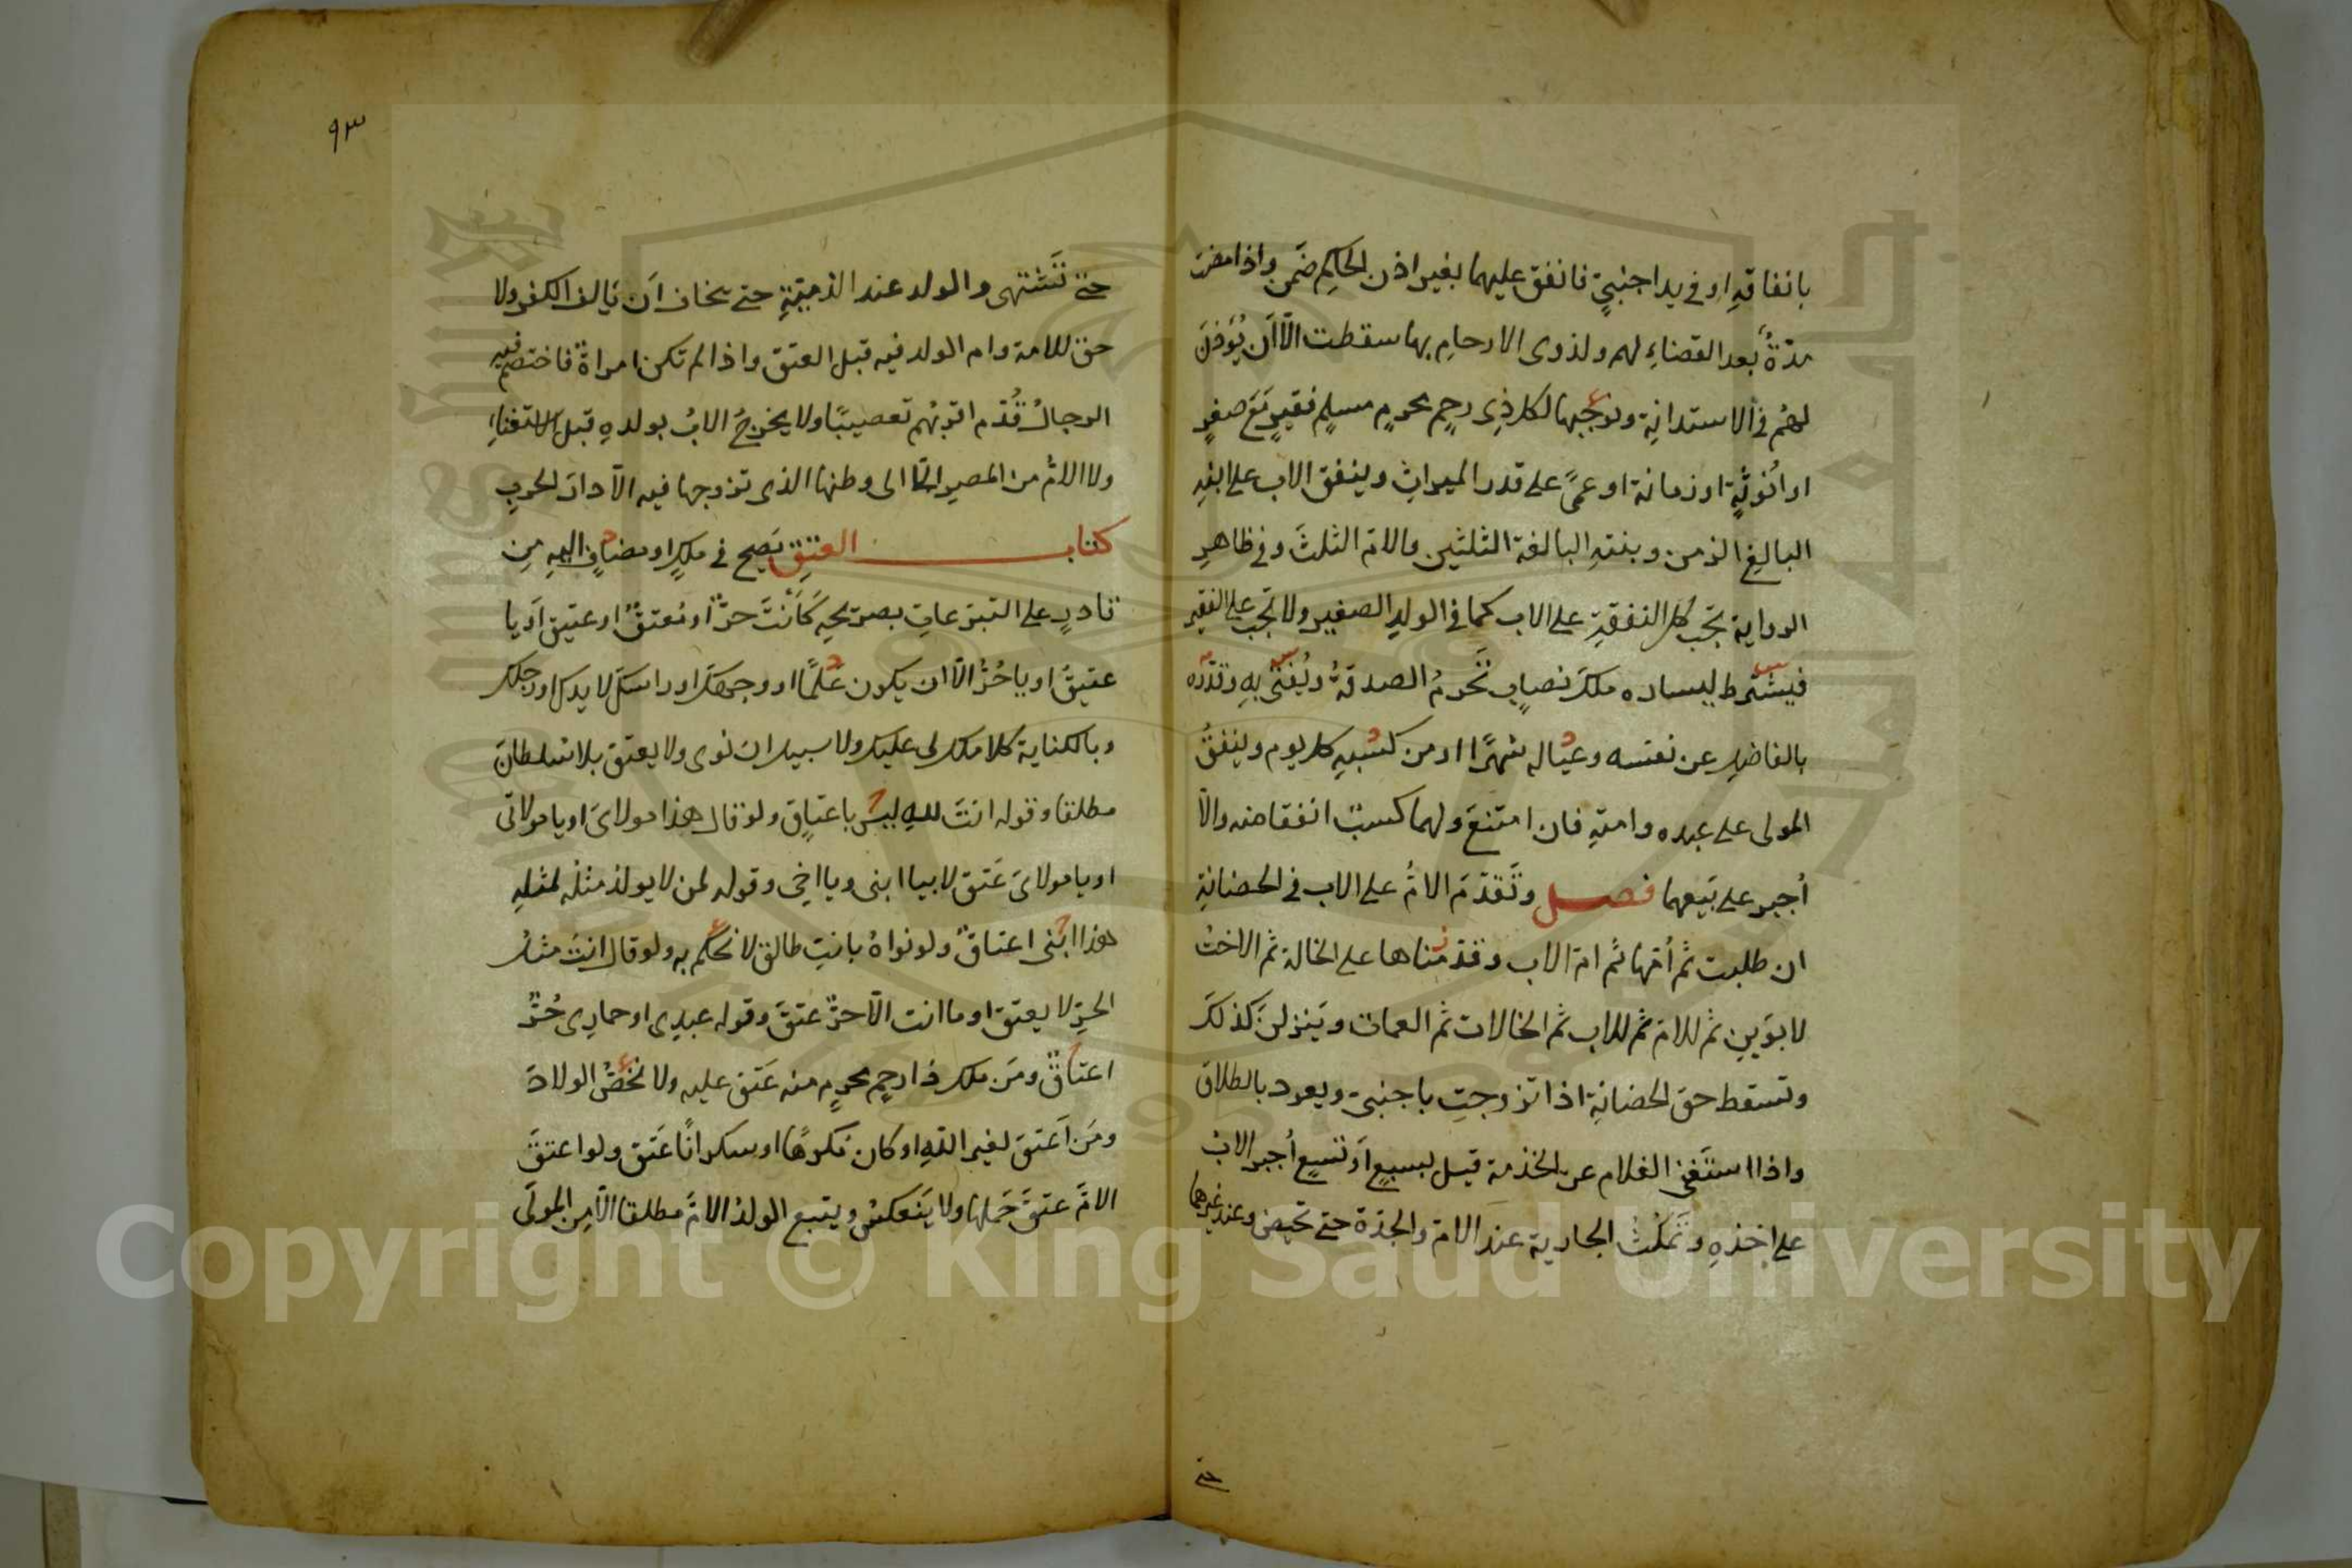 بانفاقهِ او في يد اجنبيٍ فانفق عليهما بغير اذن الحاكِم ضَمن واذا مضت
مدّةٌ بعد القضاءِ لهم ولذوى الارحامِ بها سقطت الّا اَن يُؤذنَ
لهُم في الاستدانةِ ونوجبها لكل ذِى رحِم محرمٍ مسلِم فقيرٍ مَعَ صغرٍ
او اُنوثةٍ او زمانة او عمًى على قدر الميراثِ وينفق الاب على ابنهِ
البالغِ الزمن وبنتهِ البالغة الثلثين والامّ الثلثَ وفي ظاهرِ
الرواية تجب كل النفقةِ على الاب كما في الولدِ الصغير ولا تجب على الفقير
فيشترط ليساره ملكَ نصابٍ تَحرمُ الصدقةُ ويُفتى بهِ وقدّره
بالفاضلِ عن نفسه وعياله شهرًا او من كسبهِ كل يوم وينفقُ
المولى على عبده وامتهِ فان امتنعَ ولهما كسبٌ انفقا منه والّا
اُجبر على بَيعهما فصل وتَقدّمَ الامُّ على الاب في الحضانةِ
ان طلبت ثم اُمّها ثم امّ الاب وقدّمناها على الخالة ثم الاختُ
لابوَينِ ثم للامّ ثم للاب ثم الخالات ثم العمات ويَنزلنَ كذلكَ
وتسقط حق الحضانةِ اذا تزوجتِ باجنبىّ ويعود بالطلاق
واذا استَغنى الغلام عن الخدمة قيل بسبعٍ اَو تسعٍ اُجبر الابُ
على اخذهِ وتَمكُثُ الجارية عند الامّ والجدّة حتى تحيض وعند غيرهما
حتى
٩٣
حتى تَشتهى والولد عند الذميّةِ حتى يخاف اَن يَالف الكفر ولا
حق للامة وام الولد فيه قبل العتق واذا لم تكن امراةٌ فاختصم فيه
الرجالُ قُدّم اقربُهم تعصيبًا ولا يخرجُ الابُ بولدهِ قبل الاستغناءِ
ولا الامُّ من المصير الّا الى وطنها الذى تزوجها فيه الّا دارَ الحربِ
كتاب العتقِ يَصح في ملكٍ او مضافٍ اليهِ مِن
قادرٍ على التبرّعاتِ بصريحهِ كَاَنتَ حرٌّ او مُعتقٌ او عتيق اَو يا
عتيقُ او يا حُرُّ الّا ان يكون عَلمًا او وجهكَ او راسكَ لا يدك او رجلك
وبالكناية كلا ملك لى عليك ولا سبيل ان نوى ولا يعتق بلا سُلطانَ
مطلقا وقوله انتَ للهِ ليسَ باعتاقٍ ولو قال هذا مولاىَ او يا مولاتى
او يا مولاىَ عَتق لا بيا ابنى ويا اخى وقوله لمن لا يولد مثلُه لمثلهِ
هذا ابنى اعتاقٌ ولو نواهُ بانتِ طالق لا نحكم به ولو قال انتَ مثلُ
الحرّ لا يعتق او ما انت الّا حرٌّ عتقَ وقوله عبدِى او حمارِى حُرٌّ
اعتاقٌ ومَن ملك ذا رحِمٍ محرمٍ منه عَتق عليه ولا نخصُّ الولادَ
ومَن اَعتقَ لغير اللهِ او كان مُكرهًا او سكرانًا عَتق ولو اعتقَ
الامَّ عتقَ حَملها ولا يَنعكسُ ويتبع الولدُ الامَّ مطلقا الّا مِن المولَى
Copyright © King Saud University